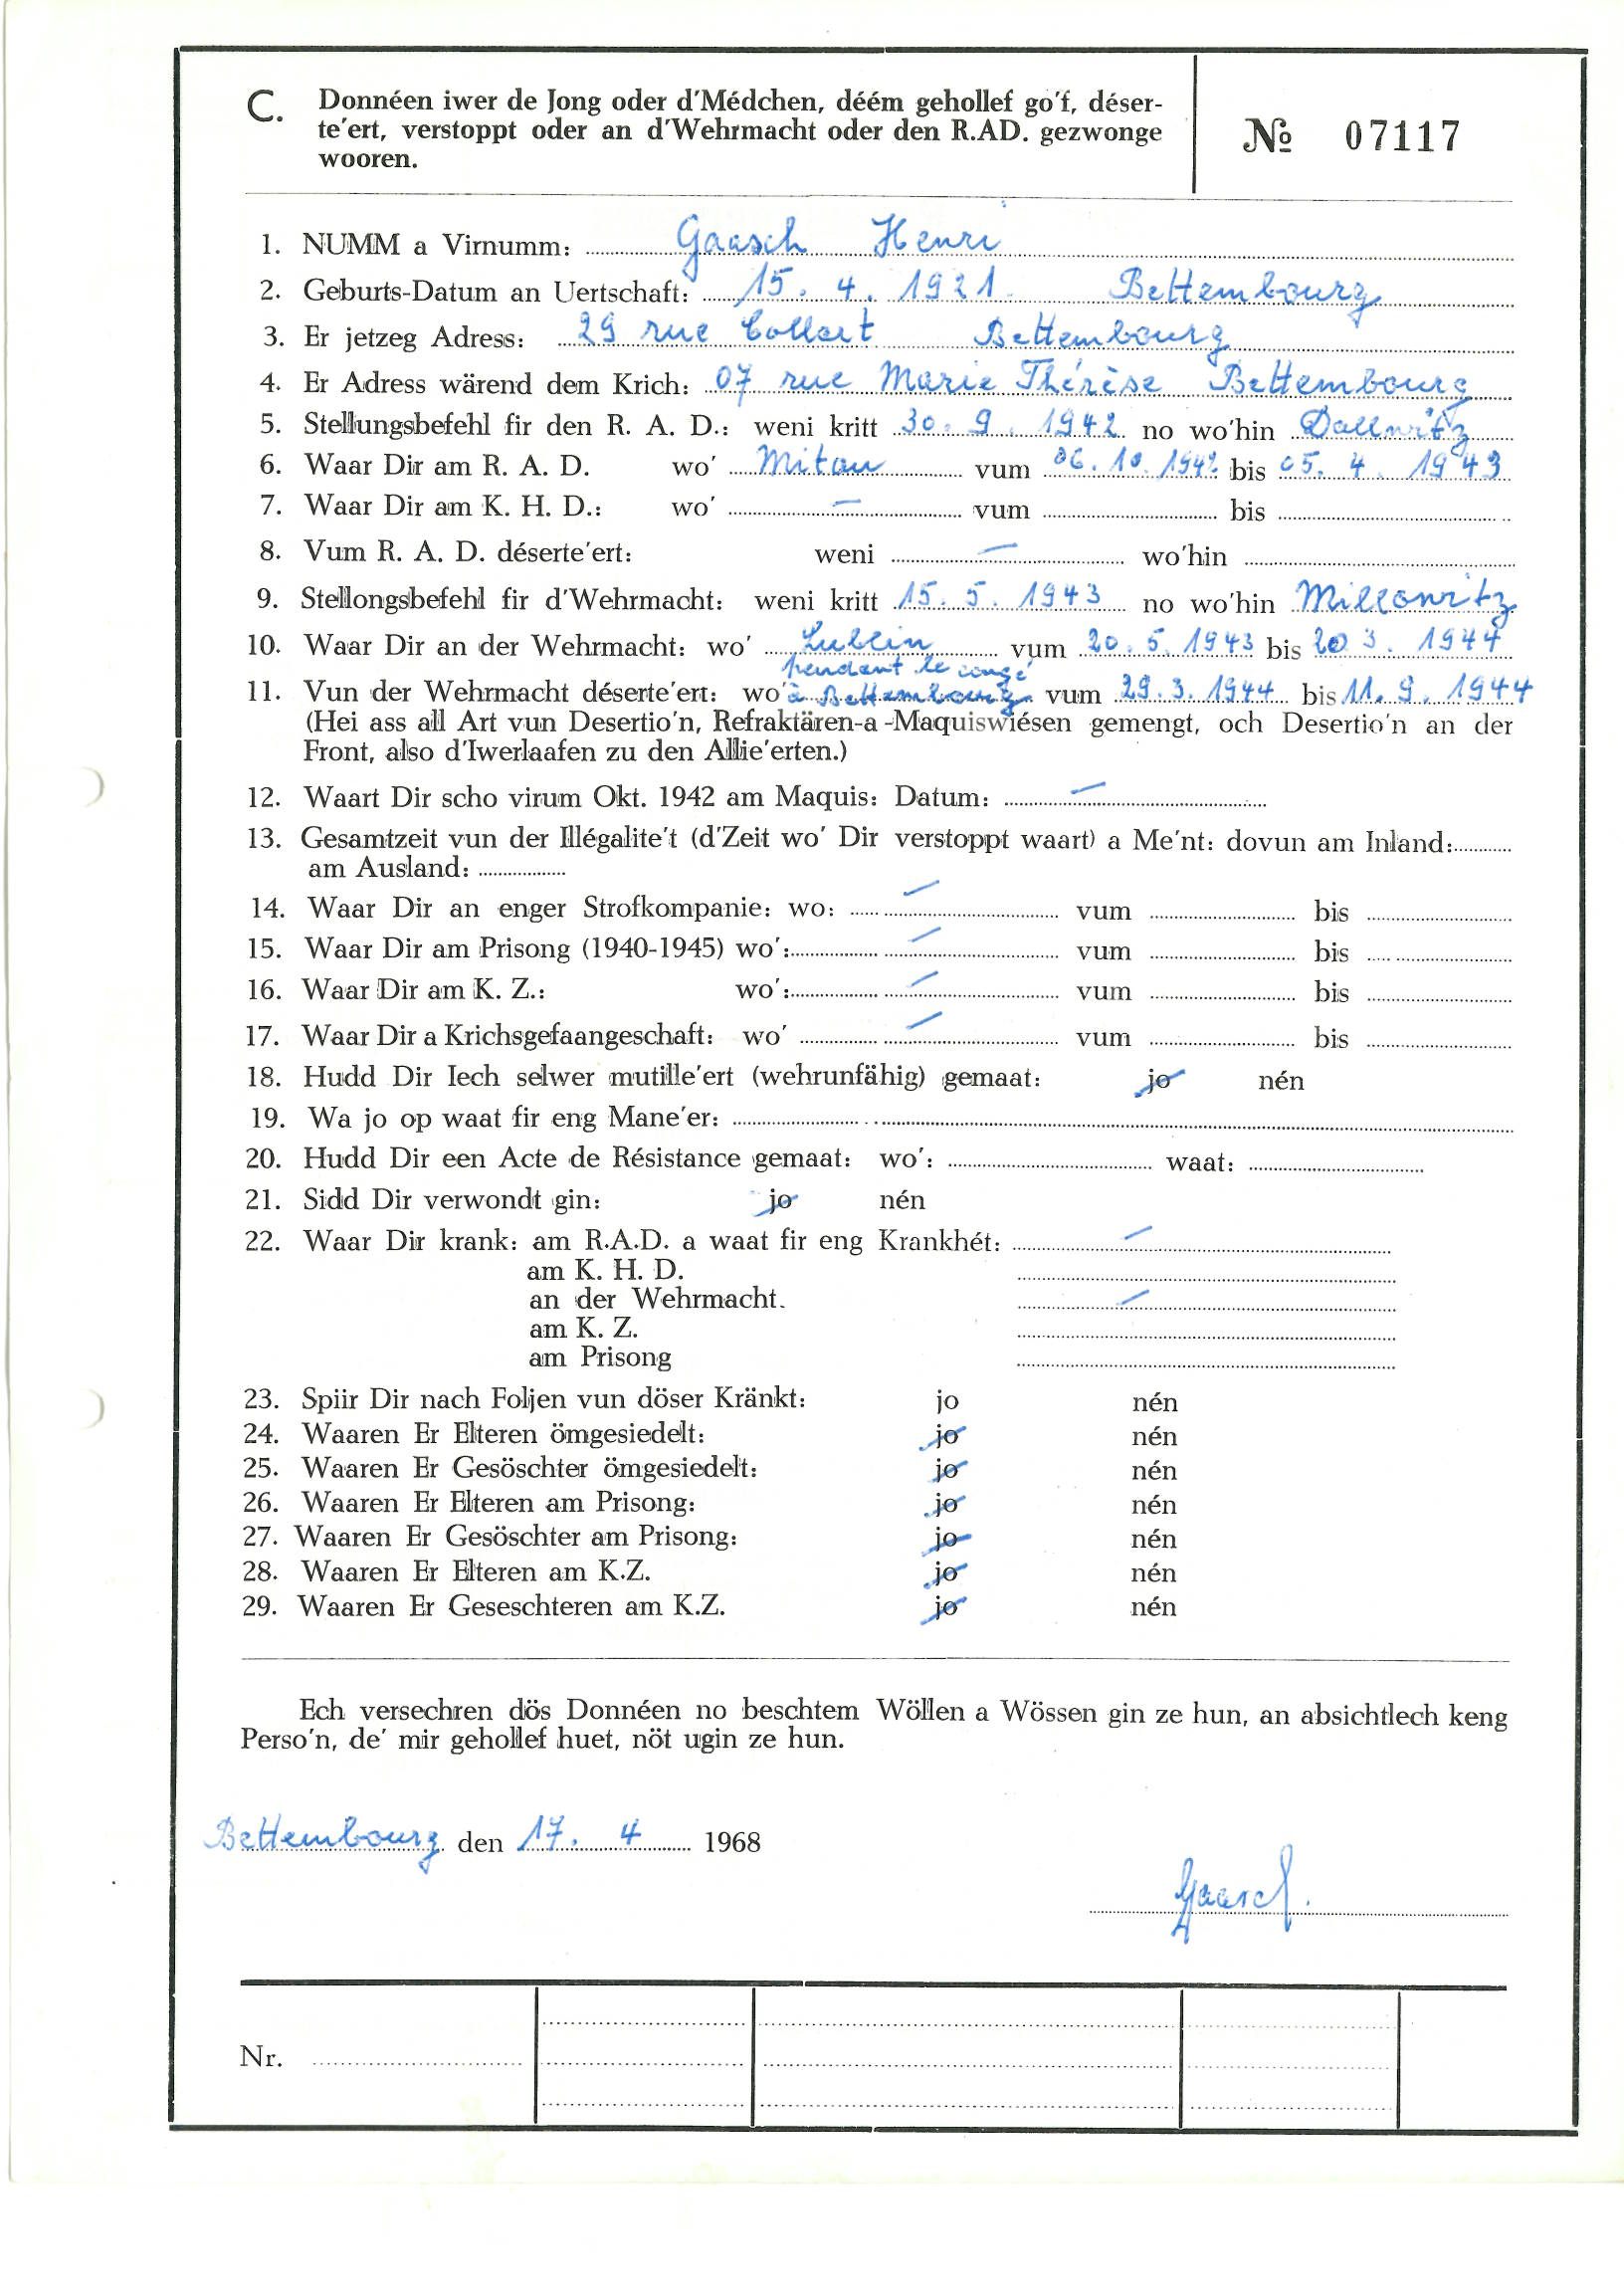 C. Donnéen iwer de Jong oder d'Médchen, déém gehollef go'f, déser-
te'ert, verstoppt oder an d'Wehrmacht oder den R.AD. gezwonge
wooren.
№ 07117
1. NUMM a Virnumm: Gaasch Henri
2. Geburts-Datum an Uertschaft: 15. 4. 1921 Bettembourg
3. Er jetzeg Adress: 29 rue Collart Bettembourg
4. Er Adress wärend dem Krich: 07 rue Marie Thérèse Bettembourg
5. Stellungsbefehl fir den R. A. D.: weni kritt 30. 9. 1942 no wo'hin Dallwitz
6. Waar Dir am R. A. D. wo' Mitau vum 06. 10. 1942 bis 05. 4. 1943
7. Waar Dir am K. H. D.: wo' — vum bis
8. Vum R. A. D. déserte'ert: weni — wo'hin
9. Stellongsbefehl fir d'Wehrmacht: weni kritt 15. 5. 1943 no wo'hin Millowitz
10. Waar Dir an der Wehrmacht: wo' Lublin vum 20. 5. 1943 bis 20 3. 1944
pendant le congé
11. Vun der Wehrmacht déserte'ert: wo' à Bettembourg vum 29. 3. 1944 bis 11. 9. 1944
(Hei ass all Art vun Desertio'n, Refraktären-a-Maquiswiésen gemengt, och Desertio'n an der
Front, also d'Iwerlaafen zu den Allie'erten.)
12. Waart Dir scho virum Okt. 1942 am Maquis: Datum: —
13. Gesamtzeit vun der Illégalite't (d'Zeit wo' Dir verstoppt waart) a Me'nt: dovun am Inland:
am Ausland:
14. Waar Dir an enger Strofkompanie: wo: — vum bis
15. Waar Dir am Prisong (1940-1945) wo': — vum bis
16. Waar Dir am K. Z.: wo': — vum bis
17. Waar Dir a Krichsgefaangeschaft: wo' — vum bis
18. Hudd Dir Iech selwer mutille'ert (wehrunfähig) gemaat: jo nén
19. Wa jo op waat fir eng Mane'er:
20. Hudd Dir een Acte de Résistance gemaat: wo': waat:
21. Sidd Dir verwondt gin: jo nén
22. Waar Dir krank: am R.A.D. a waat fir eng Krankhét: —
am K. H. D.
an der Wehrmacht. —
am K. Z.
am Prisong
23. Spiir Dir nach Foljen vun döser Kränkt: jo nén
24. Waaren Er Elteren ömgesiedelt: jo nén
25. Waaren Er Gesöschter ömgesiedelt: jo nén
26. Waaren Er Elteren am Prisong: jo nén
27. Waaren Er Gesöschter am Prisong: jo nén
28. Waaren Er Elteren am K.Z. jo nén
29. Waaren Er Geseschteren am K.Z. jo nén
Ech versechren dös Donnéen no beschtem Wöllen a Wössen gin ze hun, an absichtlech keng
Perso'n, de' mir gehollef huet, nöt ugin ze hun.
Bettembourg den 17. 4 1968
Gaasch.
Nr.